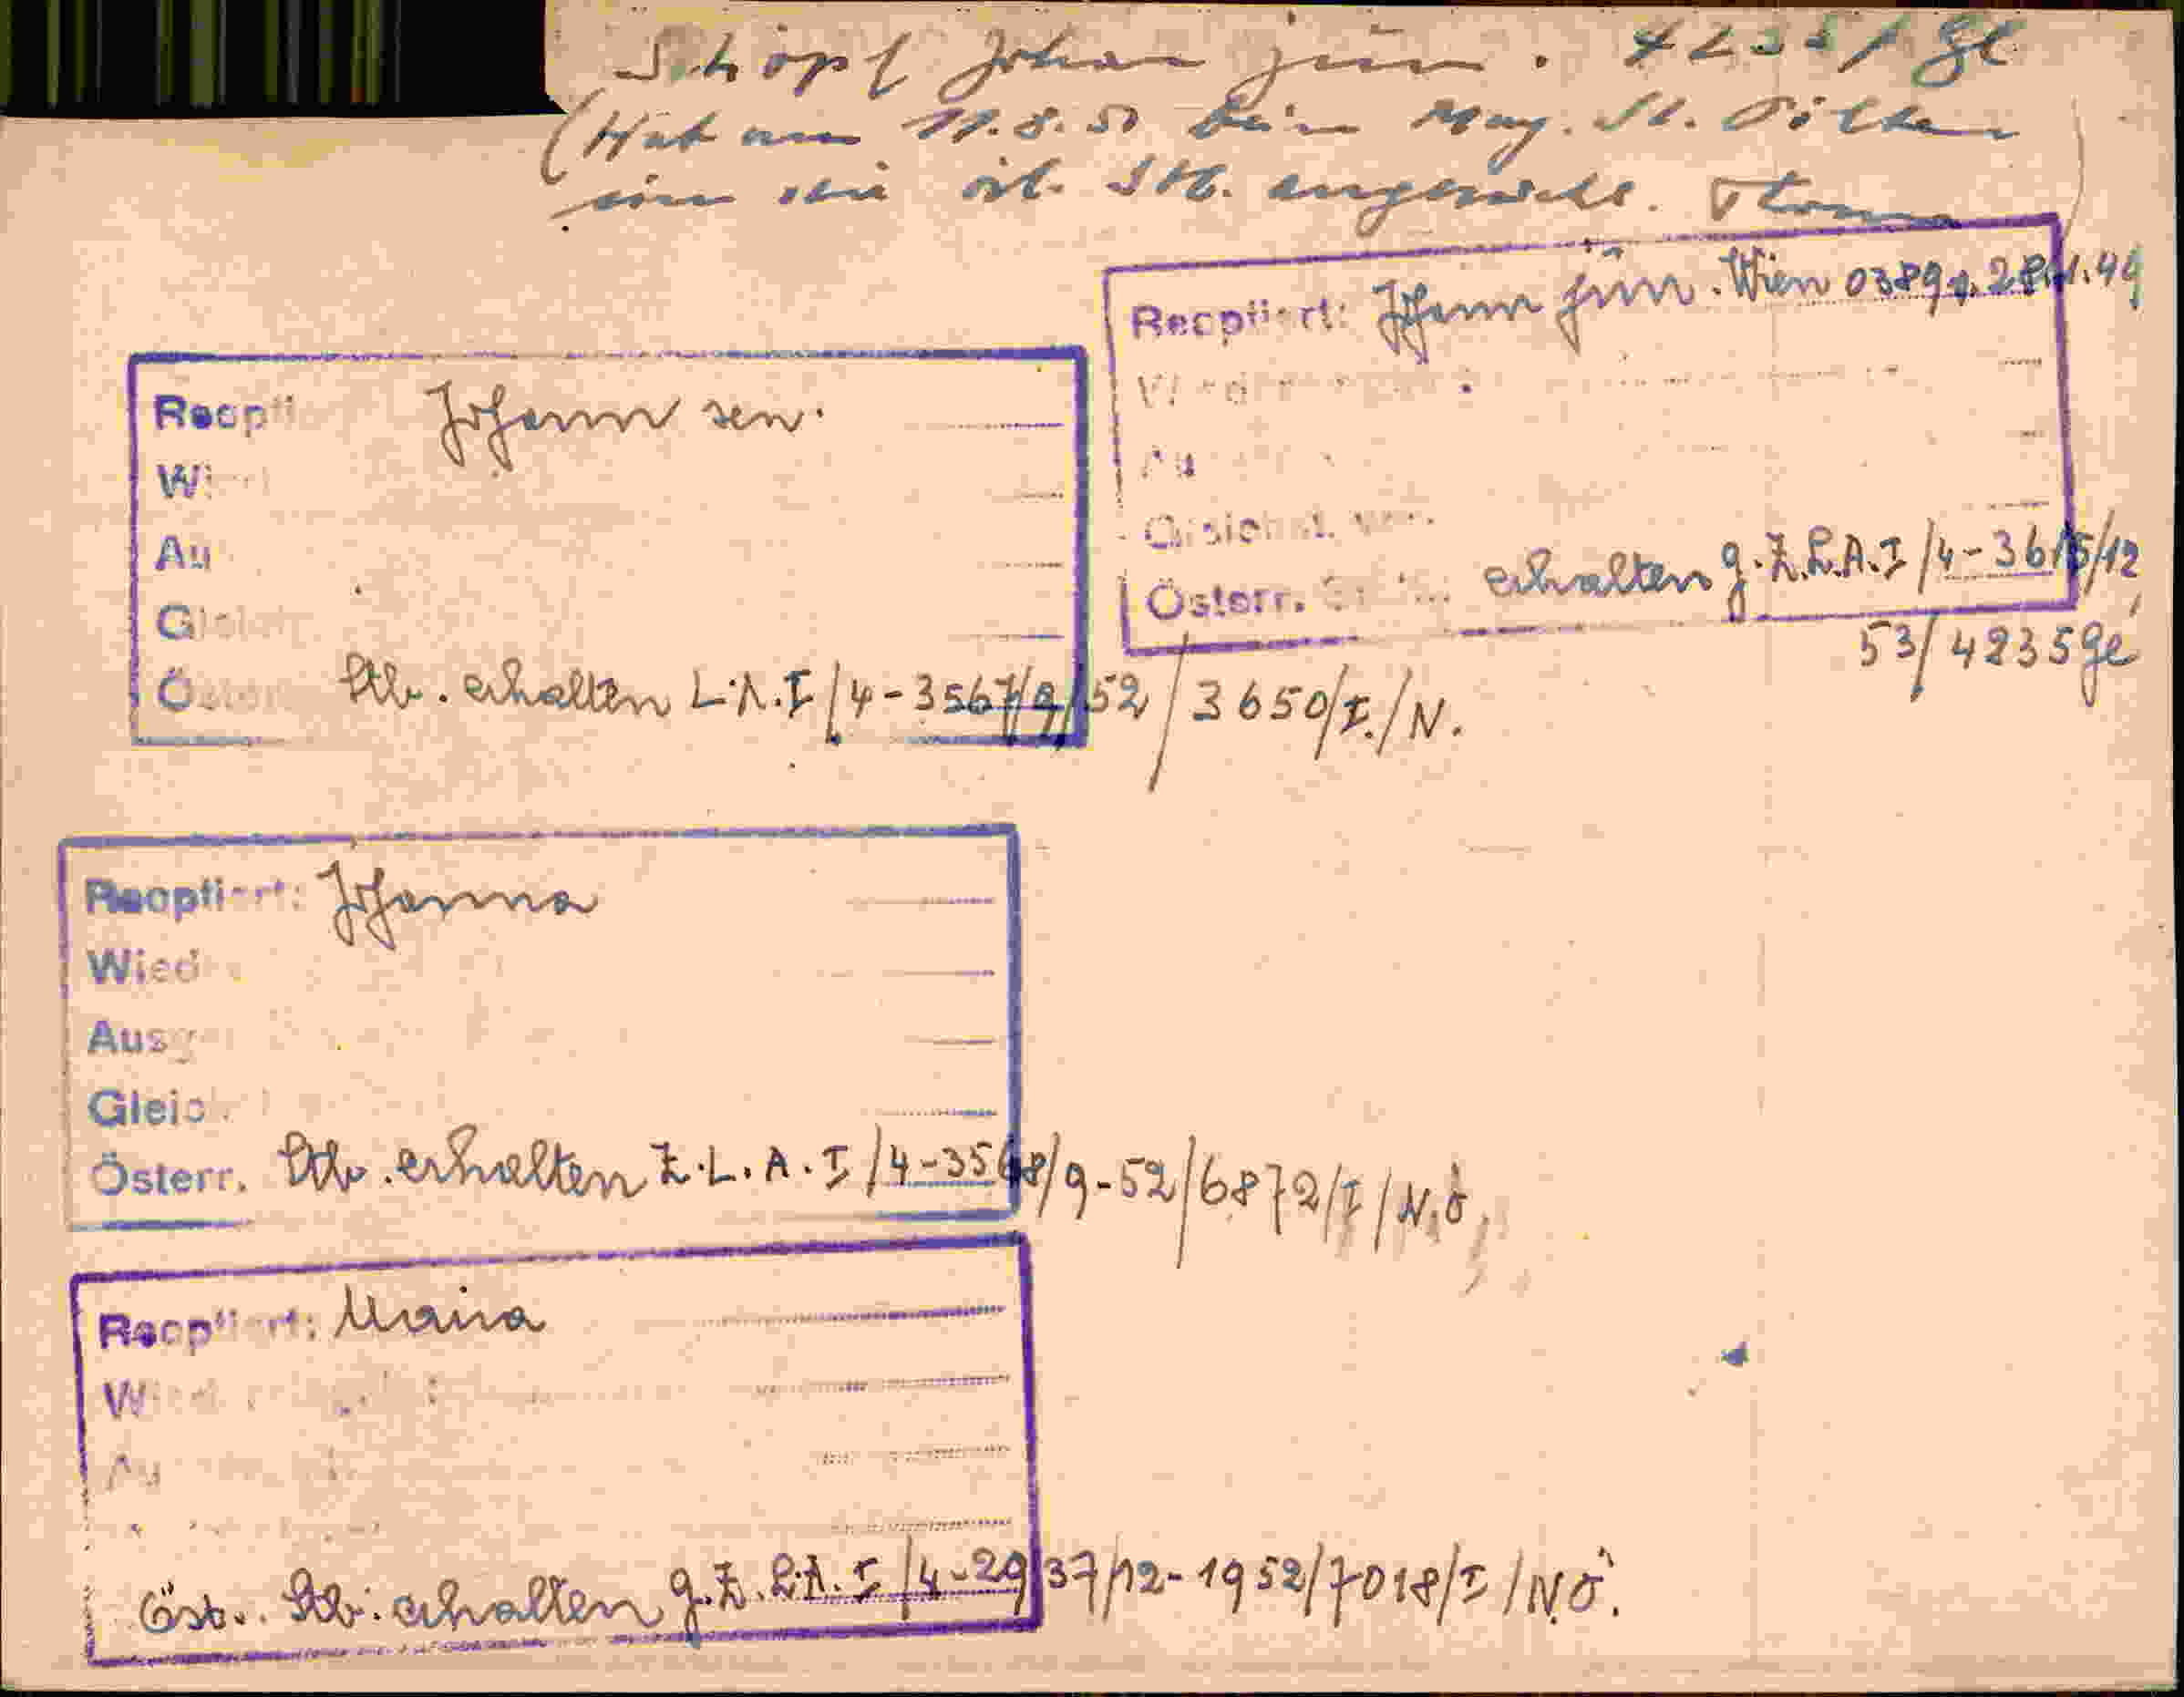 Schöpf Johann jun. 4235/ge
(Hat am 11.8.51 beim Mag. St. Pölten
um die öst. Stb. angesucht.
Reoptiert: Johann jun. Wien 0389
Österr. erhalten g. Z. L.A. I/4-3615/12
53/4235ge
Reopti Johann sen.
Wi
Au
G
Ö Stb. erhalten L.A. I/4-3567/9/52/3650/I./N.
Reoptiert: Johanna
Wied
Aus
Gleic
Österr. Stb. erhalten Z. L. A. I/4-3568/9-52/6872/I/N.Ö.
Reoptiert: Maria
W
Au
Öst. Stb. erhalten g. Z. L.A. I/4-2937/12-1952/7018/I/N.Ö.